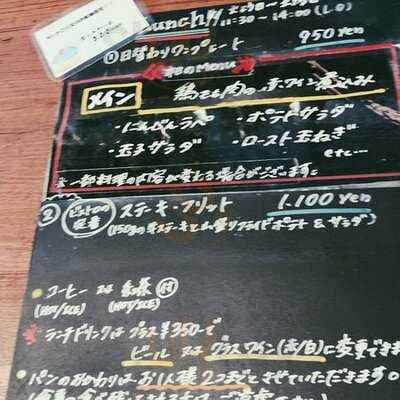 Lunch!!
11:30 ~ 14:00 (L.O)
①日替わりワンプレート 950 yen
MENU
メイン 鶏もも肉の赤ワイン煮込み
・にんじんラペ ・ポテトサラダ
・玉子サラダ ・ロースト玉ねぎ
etc...
※一部料理の内容が変わる場合がございます。
② ビストロの定番 ステーキ・フリット 1,100 yen
(150gの牛ステーキと山盛りフライドポテト & サラダ)
・コーヒー 又は 紅茶 付
(HOT/ICE) (HOT/ICE)
ランチドリンクは プラス ¥350-で
ビール 又は グラスワイン(赤/白)に変更できま
・パンのおかわりは お1人様 2つまでとさせていただきます。